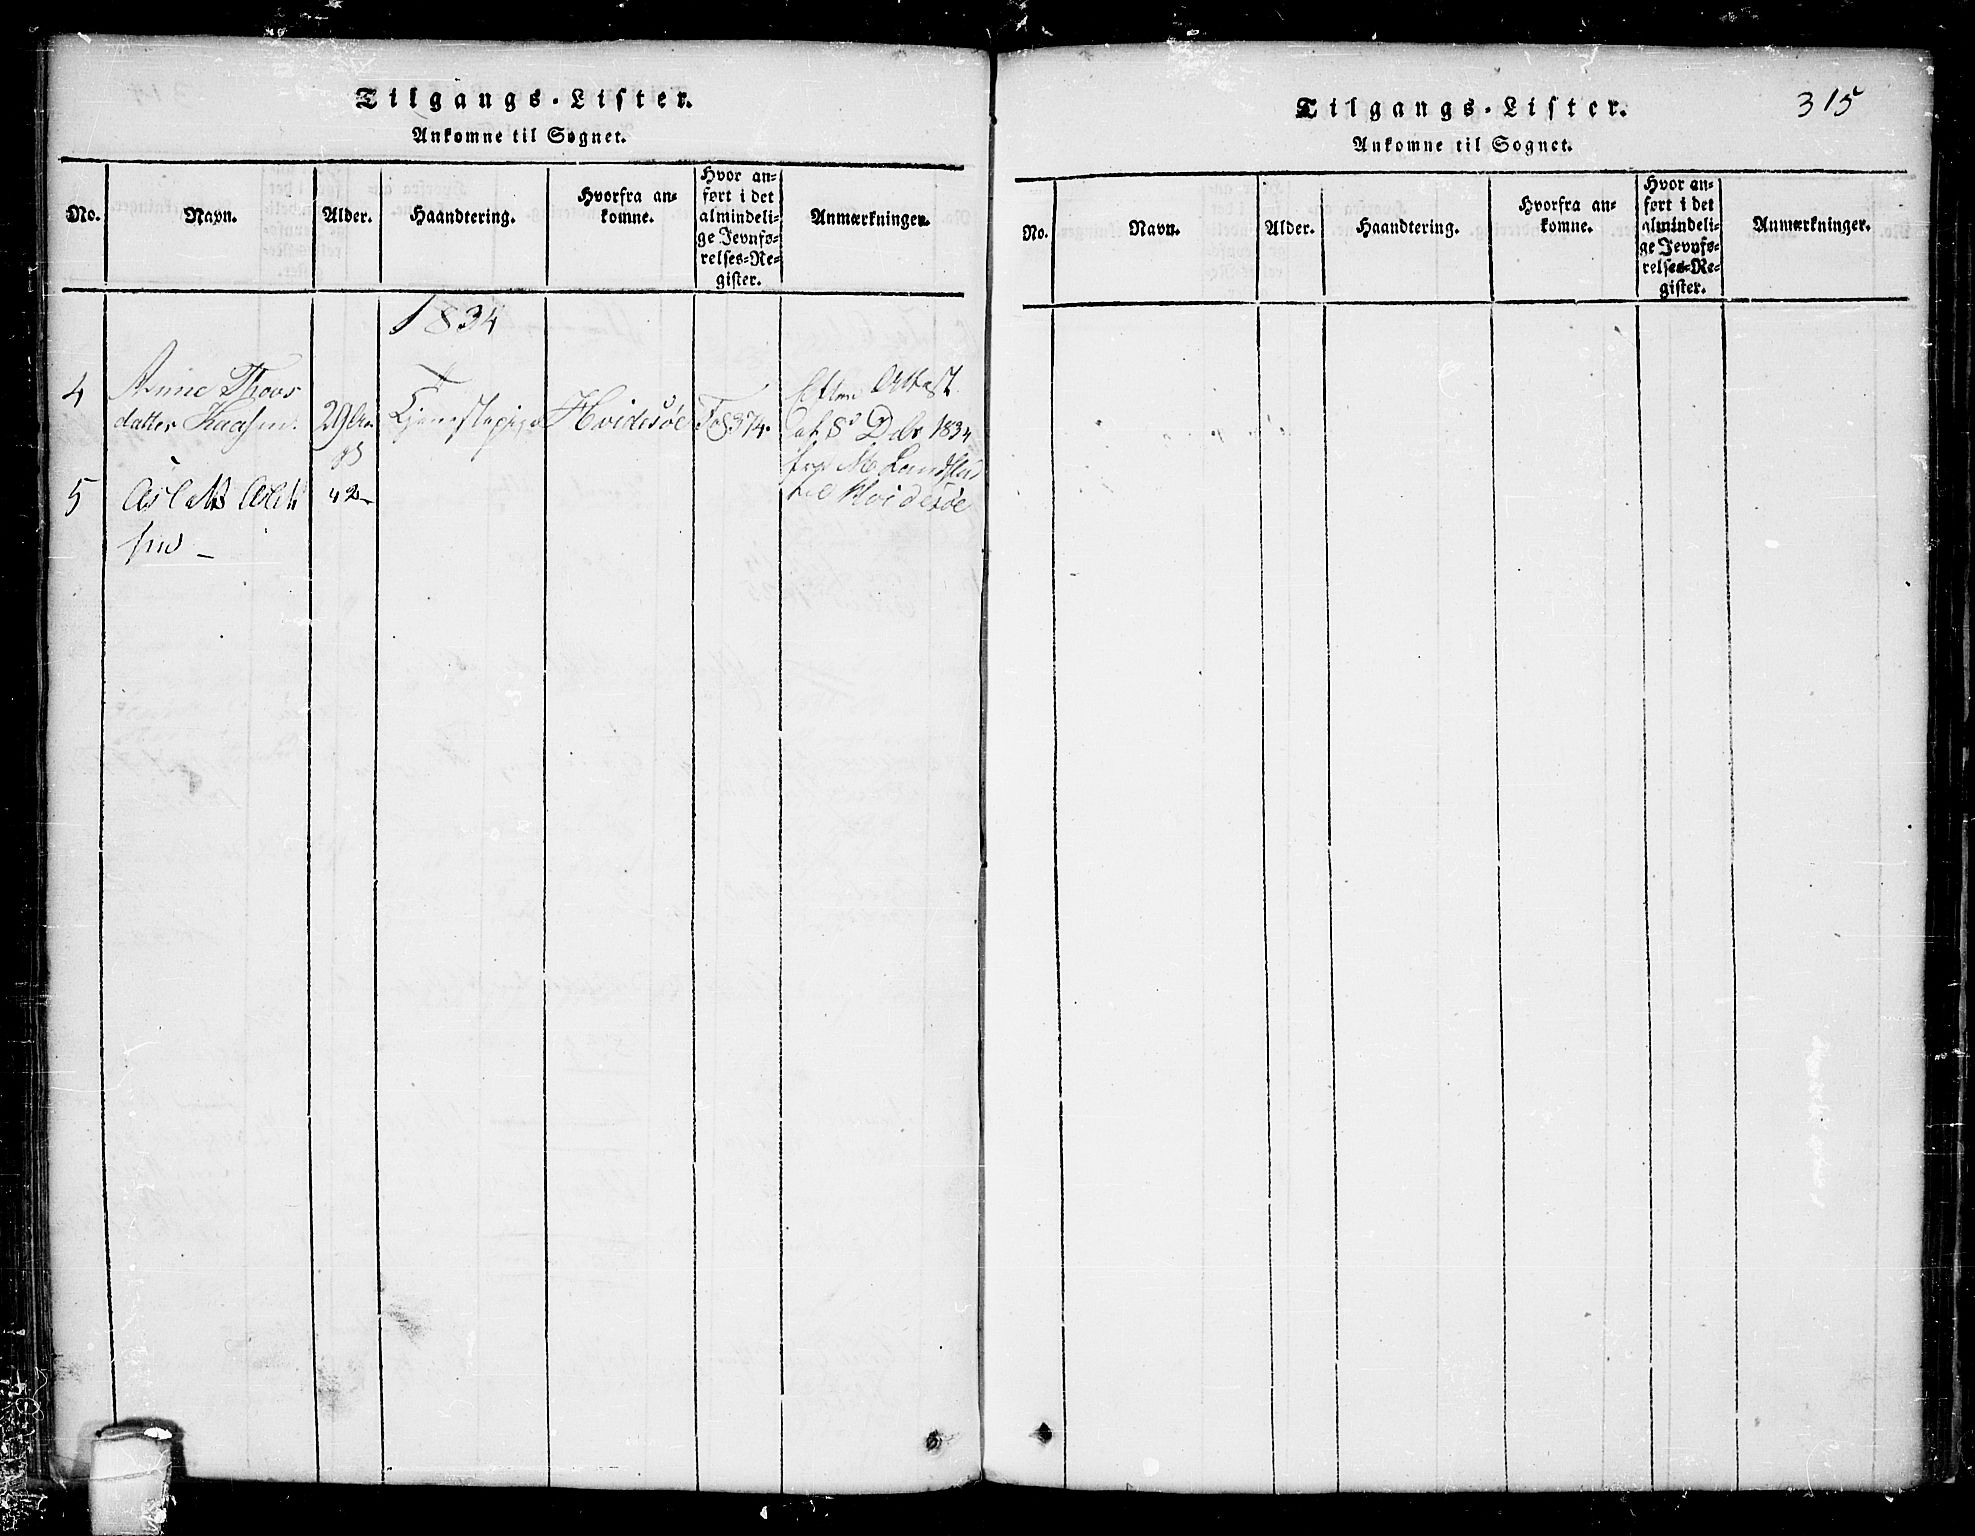 Tilgangs-Lister.
Ankomne til Sognet.
No.
Navn.
Alder.
Haandtering.
Hvorfra an-
komne.
Hvor an-
ført i det
almindeli-
ge Jevnfø-
relses-Re-
gister.
Anmærkninger.
1834
4
Anne Thors
datter
29
Hvidesøe
Fo 374.
Efter Attest
8d Dcbr 1834
M Landstad
til Hvidesøe
5
Aslak
42
315
Tilgangs-Lister.
Ankomne til Sognet.
No.
Navn.
Alder.
Haandtering.
Hvorfra an-
komne.
Hvor an-
ført i det
almindeli-
ge Jevnfø-
relses-Re-
gister.
Anmærkninger.